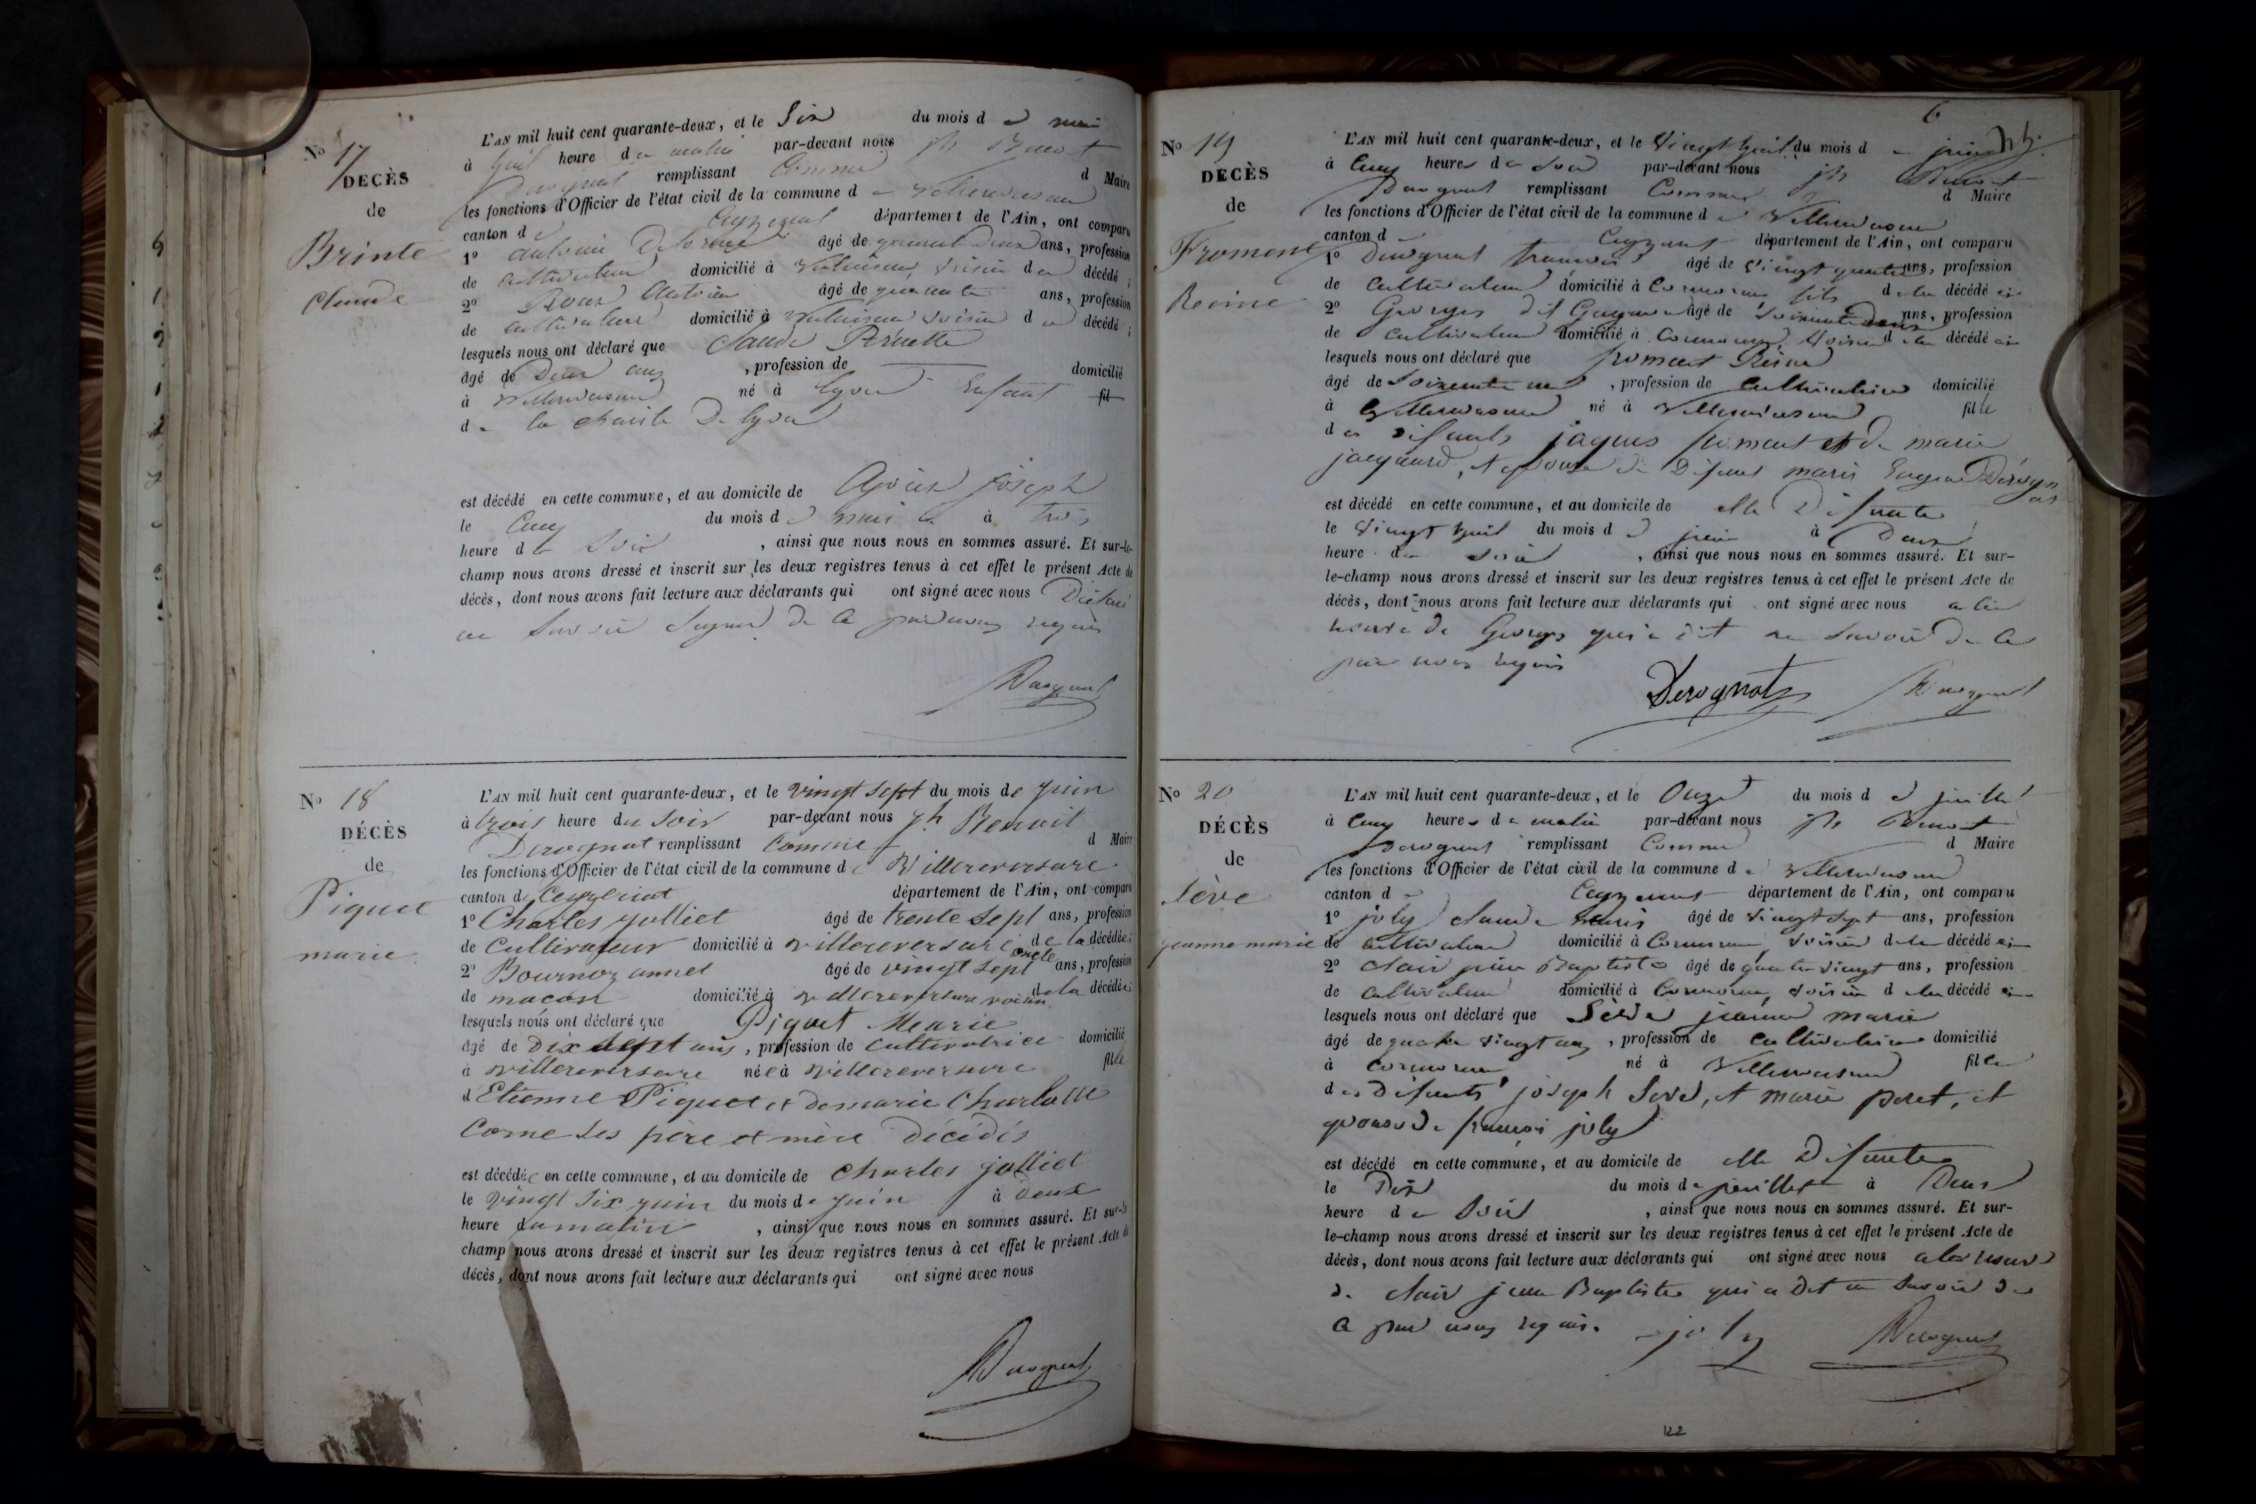 N° 17
DECÈS
de
Brinte
Claude
L'AN mil huit cent quarante-deux, et le Six du mois d e mai
à huit heure du matin par-devant nous jh Benoit
Derognat remplissant Comme d Maire
les fonctions d'Officier de l'état civil de la commune d e Villereversure
canton d e Ceyzeriat département de l'Ain, ont comparu
1° antoine âgé de quarante Deux ans, profession
de cultivateur domicilié à voisin d u décédé ;
2° Roux âgé de quarante ans, profession
de cultivateur domicilié à voisin d u décédé ;
lesquels nous ont déclaré que Claude
âgé de Deux ans , profession de domicilié
à Villereversure né à Lyon Enfant fil
d e la charité De Lyon
est décédé en cette commune, et au domicile de joseph
le Cinq du mois d e mai à trois
heure du Soir , ainsi que nous nous en sommes assuré. Et sur-le-
champ nous avons dressé et inscrit sur les deux registres tenus à cet effet le présent Acte de
décès, dont nous avons fait lecture aux déclarants qui ont signé avec nous
ne Savoir Signer De Ce par nous requis
Derognat
N° 18
DÉCÈS
de
Piquet
marie
L'AN mil huit cent quarante-deux, et le vingt sept du mois de juin
à trois heure du Soir par-devant nous jh Benoit
Derognat remplissant Comme d Maire
les fonctions d'Officier de l'état civil de la commune d e Villereversure
canton de Ceyzeriat département de l'Ain, ont comparu
1° Charles jolliet âgé de trente Sept ans, profession
de Cultivateur domicilié à villereversure oncle de la décédée ;
2° Bournoz annet âgé de vingt Sept ans, profession
de maçon domicilié à villereversure voisin de la décédée ;
lesquels nous ont déclaré que Piquet Marie
âgé de Dix sept ans , profession de cultivatrice domicilié
à villereversure née à villereversure fille
d Etienne Piquet et de marie Charlotte
Corne Ses père et mère Décédés
est décédée en cette commune, et au domicile de Charles jolliet
le vingt Six juin du mois de juin à Deux
heure du matin , ainsi que nous nous en sommes assuré. Et sur-le-
champ nous avons dressé et inscrit sur les deux registres tenus à cet effet le présent Acte de
décès, dont nous avons fait lecture aux déclarants qui ont signé avec nous
Derognat
6
N° 19
DECÈS
de
Froment
Reine
L'AN mil huit cent quarante-deux, et le vingt huit du mois d e juin
à Cinq heures du Soir par-devant nous jh Benoit
Derognat remplissant Comme d Maire
les fonctions d'Officier de l'état civil de la commune d e Villereversure
canton d Ceyzeriat département de l'Ain, ont comparu
1° Derognat françois âgé de vingt quatre ans, profession
de Cultivateur domicilié à fils de la décédé ;
2° Georges dit âgé de Soixante Deux ans, profession
de Cultivateur domicilié à voisin de la décédé ;
lesquels nous ont déclaré que froment Reine
âgé de Soixante , profession de Cultivatrice domicilié
à Villereversure né à Villereversure fille
des Défunts jaques froment et De marie
jacquand, et épouse De Défunt marie Eugene Derognat
est décédé en cette commune, et au domicile de elle Défunte
le vingt huit du mois d e juin à Deux
heure du Soir , ainsi que nous nous en sommes assuré. Et sur-
le-champ nous avons dressé et inscrit sur les deux registres tenus à cet effet le présent Acte de
décès, dont nous avons fait lecture aux déclarants qui ont signé avec nous
De Georges qui a dit ne Savoir De Ce
par nous requis
Derognat Derognat
N° 20
DÉCÈS
de
Sève
jeanne marie
L'AN mil huit cent quarante-deux, et le Onze du mois d e juillet
à Cinq heures du matin par-devant nous jh Benoit
Derognat remplissant Comme d Maire
les fonctions d'Officier de l'état civil de la commune d e Villereversure
canton d e Ceyzeriat département de l'Ain, ont comparu
1° joly Claude marie âgé de vingt Sept ans, profession
de cultivateur domicilié à voisin de la décédé ;
2° Clair jean Baptiste âgé de quatre vingt ans, profession
de cultivateur domicilié à voisin de la décédé
lesquels nous ont déclaré que Sève jeanne marie
âgé de quatre vingt ans , profession de Cultivatrice domicilié
à né à Villereversure fille
des Défunts joseph Sève, et marie peret, et
epouse De françois joly
est décédé en cette commune, et au domicile de elle Défunte
le Dix du mois de juillet à Deux
heure du Soir , ainsi que nous nous en sommes assuré. Et sur-
le-champ nous avons dressé et inscrit sur les deux registres tenus à cet effet le présent Acte de
décès, dont nous avons fait lecture aux déclarants qui ont signé avec nous
De Clair jean Baptiste qui a Dit ne Savoir De
Ce par nous requis.
joly Derognat
122